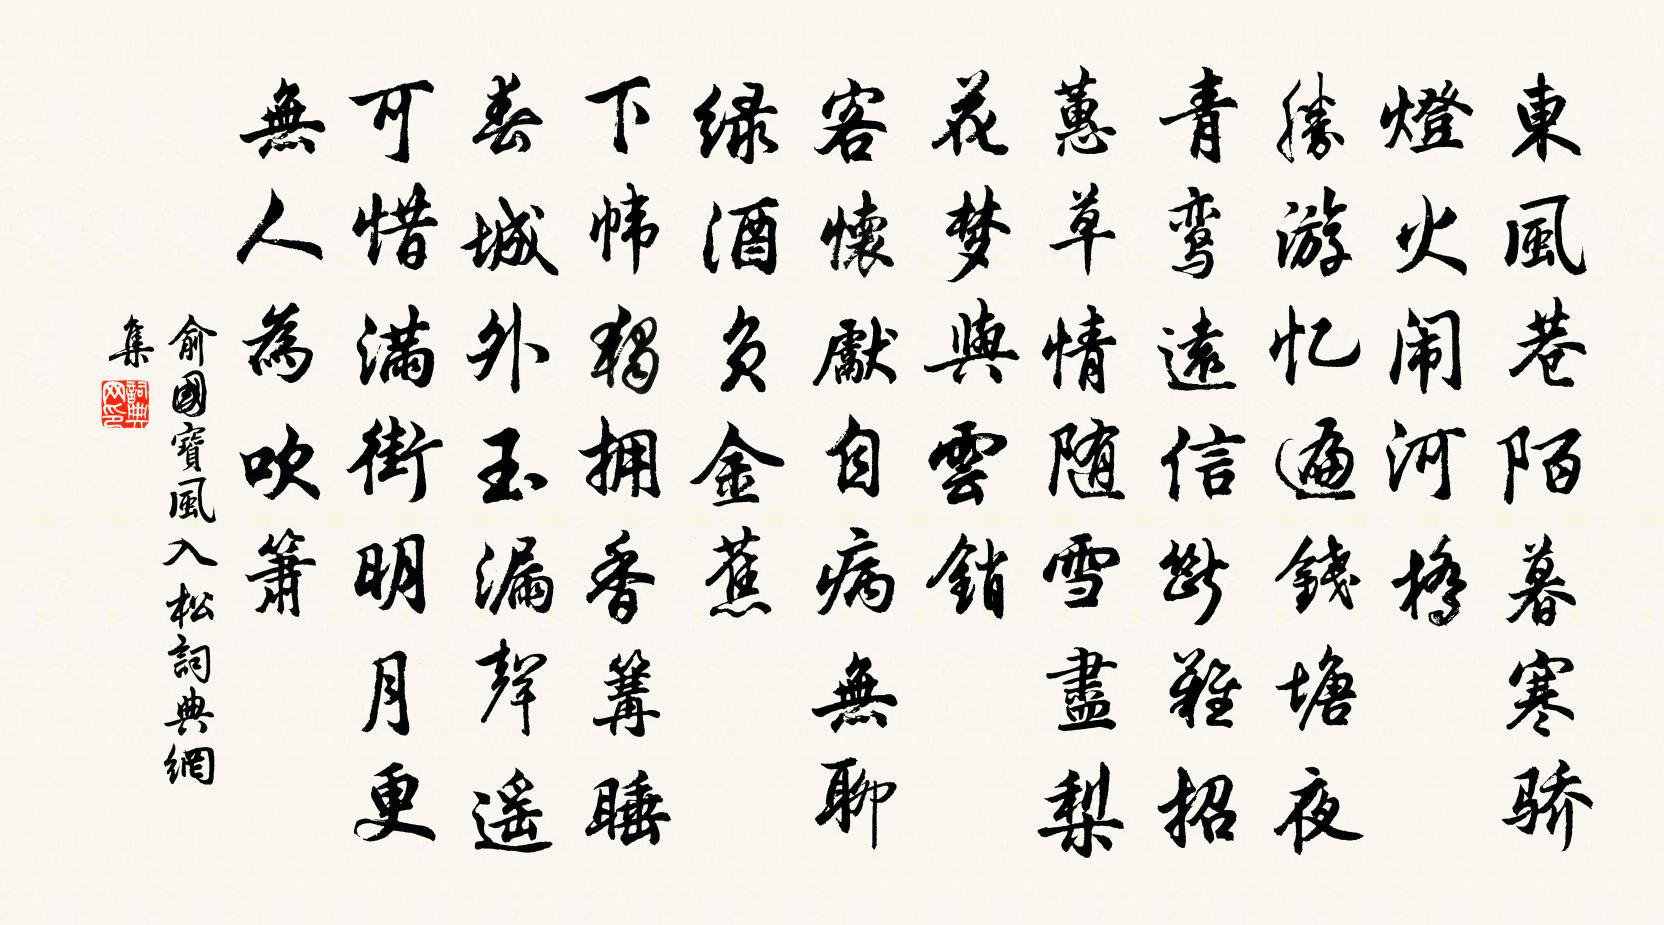 東風巷陌暮寒骄
燈火闹河橋
勝游忆遍錢塘夜
青鸾遠信斷難招
蕙草情随雪盡梨
花梦與雲銷
客懷獻自病無聊
绿酒负金蕉
下帏獨拥香篝睡
春城外玉漏聲遥
可惜满街明月更
無人為吹簫
俞國寶風入松詞典網
集
詞典网印